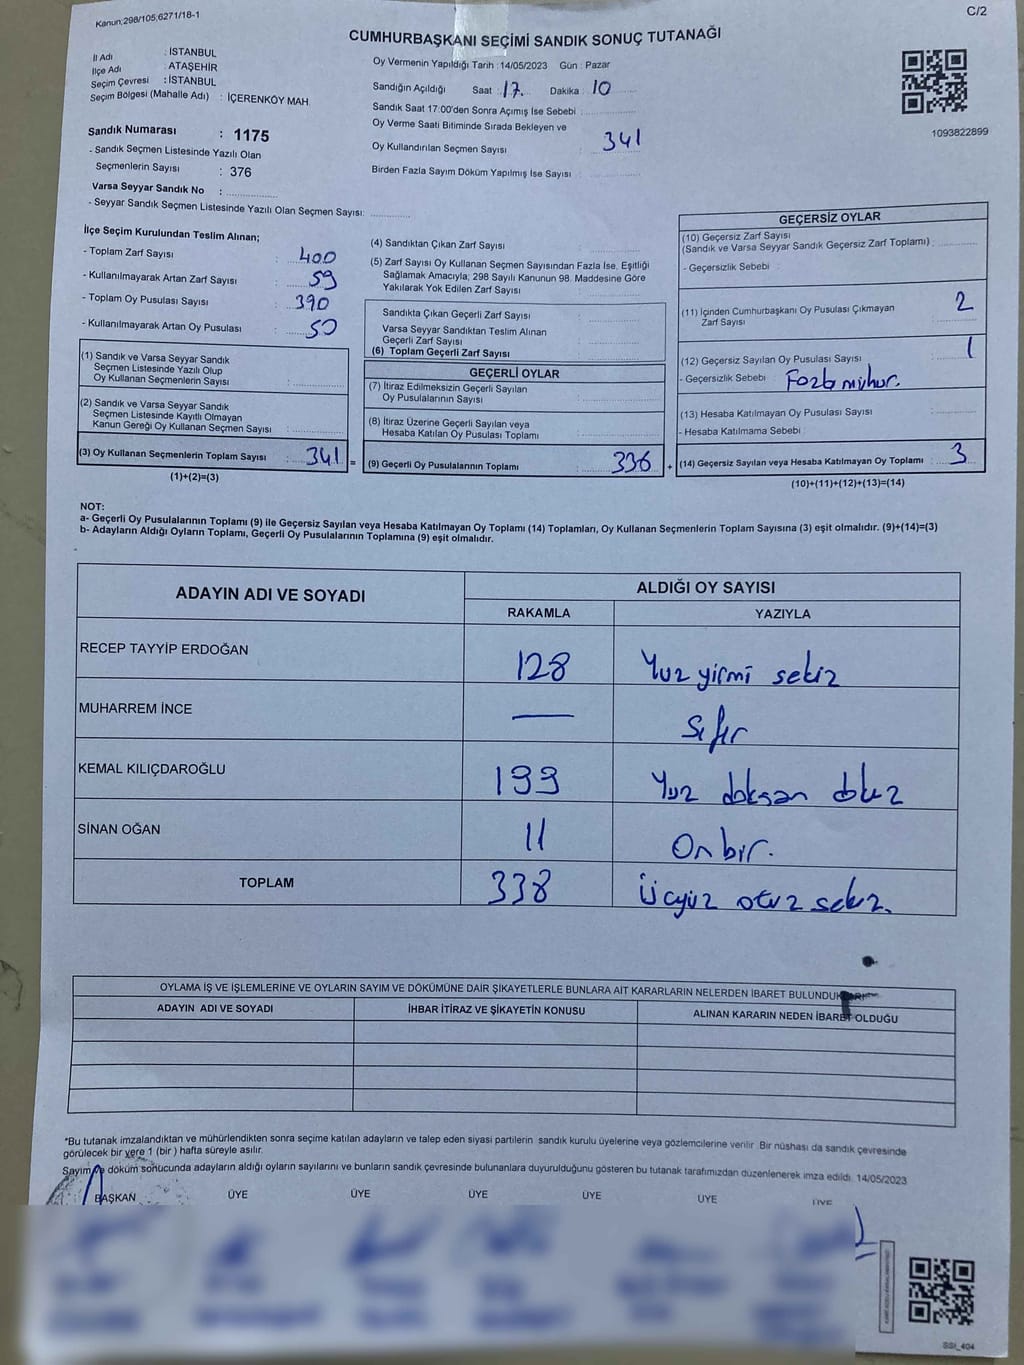 Kanun;298/105;6271/18-1
C/2
CUMHURBAŞKANI SEÇİMİ SANDIK SONUÇ TUTANAĞI
İl Adı : İSTANBUL
İlçe Adı : ATAŞEHİR
Seçim Çevresi : İSTANBUL
Seçim Bölgesi (Mahalle Adı) : İÇERENKÖY MAH.
Oy Vermenin Yapıldığı Tarih :14/05/2023 Gün : Pazar
Sandığın Açıldığı Saat : 17. Dakika : 10
Sandık Saat 17:00'den Sonra Açımış İse Sebebi :
Oy Verme Saati Bitiminde Sırada Bekleyen ve
Oy Kullandırılan Seçmen Sayısı : 341
Birden Fazla Sayım Döküm Yapılmış İse Sayısı :
1093822899
Sandık Numarası : 1175
- Sandık Seçmen Listesinde Yazılı Olan
Seçmenlerin Sayısı : 376
Varsa Seyyar Sandık No :
- Seyyar Sandık Seçmen Listesinde Yazılı Olan Seçmen Sayısı:
İlçe Seçim Kurulundan Teslim Alınan;
- Toplam Zarf Sayısı : 400
- Kullanılmayarak Artan Zarf Sayısı : 59
- Toplam Oy Pusulası Sayısı : 390
- Kullanılmayarak Artan Oy Pusulası : 50
(1) Sandık ve Varsa Seyyar Sandık
Seçmen Listesinde Yazılı Olup
Oy Kullanan Seçmenlerin Sayısı :
(2) Sandık ve Varsa Seyyar Sandık
Seçmen Listesinde Kayıtlı Olmayan
Kanun Gereği Oy Kullanan Seçmen Sayısı :
(3) Oy Kullanan Seçmenlerin Toplam Sayısı : 341 =
(1)+(2)=(3)
(4) Sandıktan Çıkan Zarf Sayısı :
(5) Zarf Sayısı Oy Kullanan Seçmen Sayısından Fazla İse, Eşitliği
Sağlamak Amacıyla; 298 Sayılı Kanunun 98. Maddesine Göre
Yakılarak Yok Edilen Zarf Sayısı :
Sandıkta Çıkan Geçerli Zarf Sayısı :
Varsa Seyyar Sandıktan Teslim Alınan
Geçerli Zarf Sayısı :
(6) Toplam Geçerli Zarf Sayısı :
GEÇERLİ OYLAR
(7) İtiraz Edilmeksizin Geçerli Sayılan
Oy Pusulalarının Sayısı :
(8) İtiraz Üzerine Geçerli Sayılan veya
Hesaba Katılan Oy Pusulası Toplamı :
(9) Geçerli Oy Pusulalarının Toplamı : 336 +
GEÇERSİZ OYLAR
(10) Geçersiz Zarf Sayısı
(Sandık ve Varsa Seyyar Sandık Geçersiz Zarf Toplamı) :
- Geçersizlik Sebebi :
(11) İçinden Cumhurbaşkanı Oy Pusulası Çıkmayan
Zarf Sayısı : 2
(12) Geçersiz Sayılan Oy Pusulası Sayısı : 1
- Geçersizlik Sebebi : Fazla mühür.
(13) Hesaba Katılmayan Oy Pusulası Sayısı :
- Hesaba Katılmama Sebebi :
(14) Geçersiz Sayılan veya Hesaba Katılmayan Oy Toplamı : 3
(10)+(11)+(12)+(13)=(14)
NOT:
a- Geçerli Oy Pusulalarının Toplamı (9) ile Geçersiz Sayılan veya Hesaba Katılmayan Oy Toplamı (14) Toplamları, Oy Kullanan Seçmenlerin Toplam Sayısına (3) eşit olmalıdır. (9)+(14)=(3)
b- Adayların Aldığı Oyların Toplamı, Geçerli Oy Pusulalarının Toplamına (9) eşit olmalıdır.
ADAYIN ADI VE SOYADI ALDIĞI OY SAYISI
RAKAMLA YAZIYLA
RECEP TAYYİP ERDOĞAN 128 Yüz yirmi sekiz
MUHARREM İNCE — Sıfır
KEMAL KILIÇDAROĞLU 199 Yüz doksan dokuz
SİNAN OĞAN 11 On bir.
TOPLAM 338 Üçyüz otuz sekiz.
OYLAMA İŞ VE İŞLEMLERİNE VE OYLARIN SAYIM VE DÖKÜMÜNE DAİR ŞİKAYETLERLE BUNLARA AİT KARARLARIN NELERDEN İBARET BULUNDUKLARI
ADAYIN ADI VE SOYADI İHBAR İTİRAZ VE ŞİKAYETİN KONUSU ALINAN KARARIN NEDEN İBARET OLDUĞU
*Bu tutanak imzalandıktan ve mühürlendikten sonra seçime katılan adayların ve talep eden siyasi partilerin sandık kurulu üyelerine veya gözlemcilerine verilir. Bir nüshası da sandık çevresinde
görülecek bir yere 1 (bir ) hafta süreyle asılır.
Sayım ve döküm sonucunda adayların aldığı oyların sayılarını ve bunların sandık çevresinde bulunanlara duyurulduğunu gösteren bu tutanak tarafımızdan düzenlenerek imza edildi. 14/05/2023
BAŞKAN ÜYE ÜYE ÜYE ÜYE ÜYE ÜYE
SSI_404